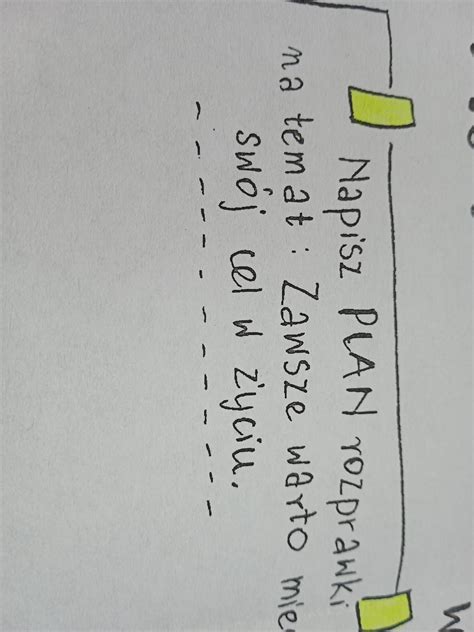 Napisz PLAN rozprawki
na temat: Zawsze warto mieć
swój cel w życiu.